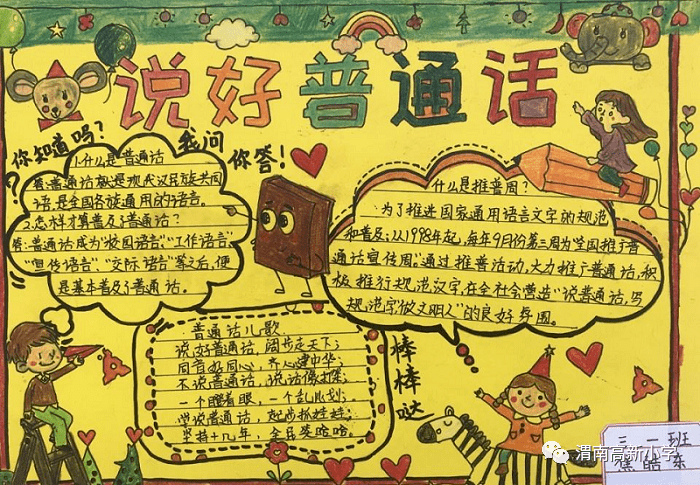 说好普通话
你知道吗?
我问
你答!
1.什么是普通话
答:普通话就是现代汉民族共同
语,是全国各族通用的语言。
2.怎样才算普及了普通话?
答:普通话成为"校园语言""工作语言"
"宣传语言"、"交际语言"等之后,便
是基本普及了普通话。
什么是推普周?
为了推进国家通用语言文字的规范
和普及;从1998年起,每年9月份第三周为全国推广普
通话宣传周。通过推普活动,大力推广普通话,积
极推行规范汉字,在全社会营造"说普通话,写
规范字做文明人"的良好氛围。
普通话儿歌
说好普通话,阔步走天下;
同音好同心,齐心建中华;
不说普通话,说话像打架;
一个瞪着眼,一个乱比划;
学说普通话,起步抓娃娃;
坚持十几年,全民笑哈哈。
棒棒哒
三一班
焦皓东
渭南高新小学